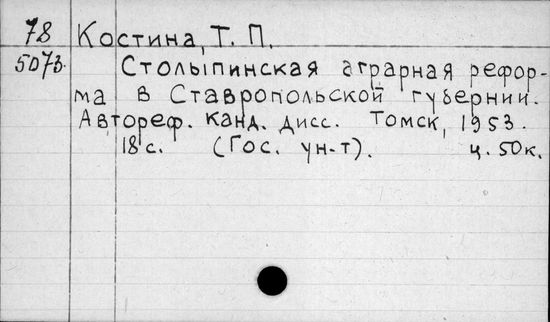 78 Костина, Т. П.
5073 Столыпинская аграрная рефор-
ма в Ставропольской губернии.
Автореф. канд. дисс. Томск, 1953.
18 с. (Гос. ун-т). ц. 50к.